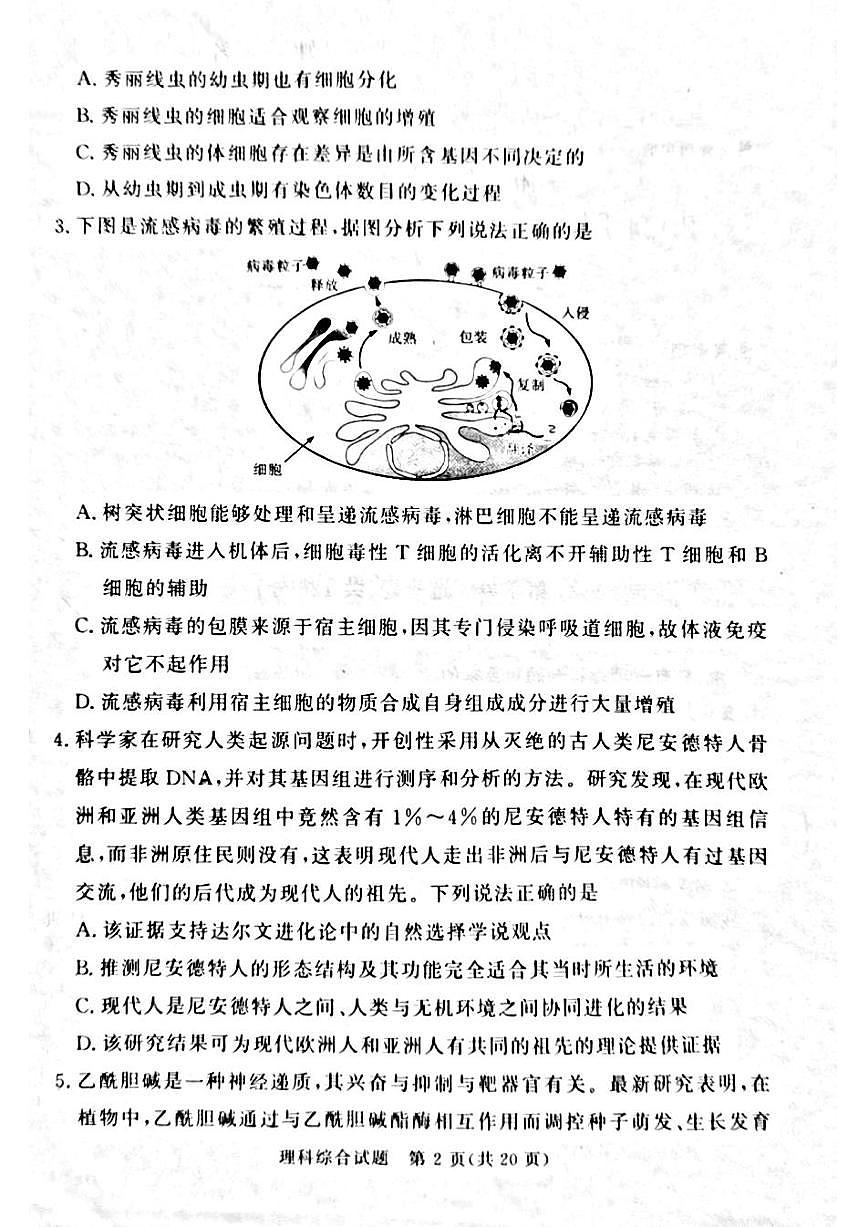 A. 秀丽线虫的幼虫期也有细胞分化
B. 秀丽线虫的细胞适合观察细胞的增殖
C. 秀丽线虫的体细胞存在差异是由所含基因不同决定的
D. 从幼虫期到成虫期有染色体数目的变化过程
3. 下图是流感病毒的繁殖过程,据图分析下列说法正确的是
病毒粒子
释放
病毒粒子
入侵
成熟
包装
复制
2
细胞
A. 树突状细胞能够处理和呈递流感病毒,淋巴细胞不能呈递流感病毒
B. 流感病毒进入机体后,细胞毒性 T 细胞的活化离不开辅助性 T 细胞和 B
细胞的辅助
C. 流感病毒的包膜来源于宿主细胞,因其专门侵染呼吸道细胞,故体液免疫
对它不起作用
D. 流感病毒利用宿主细胞的物质合成自身组成成分进行大量增殖
4. 科学家在研究人类起源问题时,开创性采用从灭绝的古人类尼安德特人骨
骼中提取 DNA,并对其基因组进行测序和分析的方法。研究发现,在现代欧
洲和亚洲人类基因组中竟然含有 1%~4%的尼安德特人特有的基因组信
息,而非洲原住民则没有,这表明现代人走出非洲后与尼安德特人有过基因
交流,他们的后代成为现代人的祖先。下列说法正确的是
A. 该证据支持达尔文进化论中的自然选择学说观点
B. 推测尼安德特人的形态结构及其功能完全适合其当时所生活的环境
C. 现代人是尼安德特人之间、人类与无机环境之间协同进化的结果
D. 该研究结果可为现代欧洲人和亚洲人有共同的祖先的理论提供证据
5. 乙酰胆碱是一种神经递质,其兴奋与抑制与靶器官有关。最新研究表明,在
植物中,乙酰胆碱通过与乙酰胆碱酯酶相互作用而调控种子萌发、生长发育
理科综合试题 第 2 页(共 20 页)